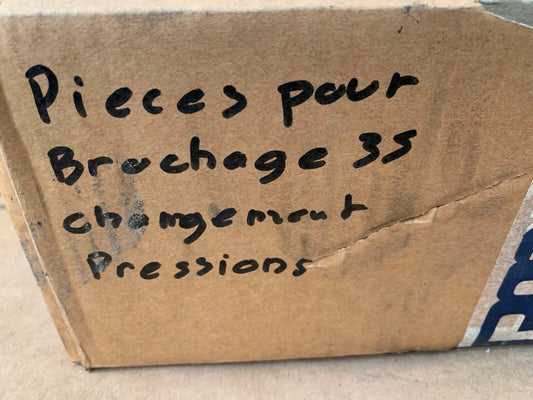 Pieces pour
Brochage 35
changement
Pressions